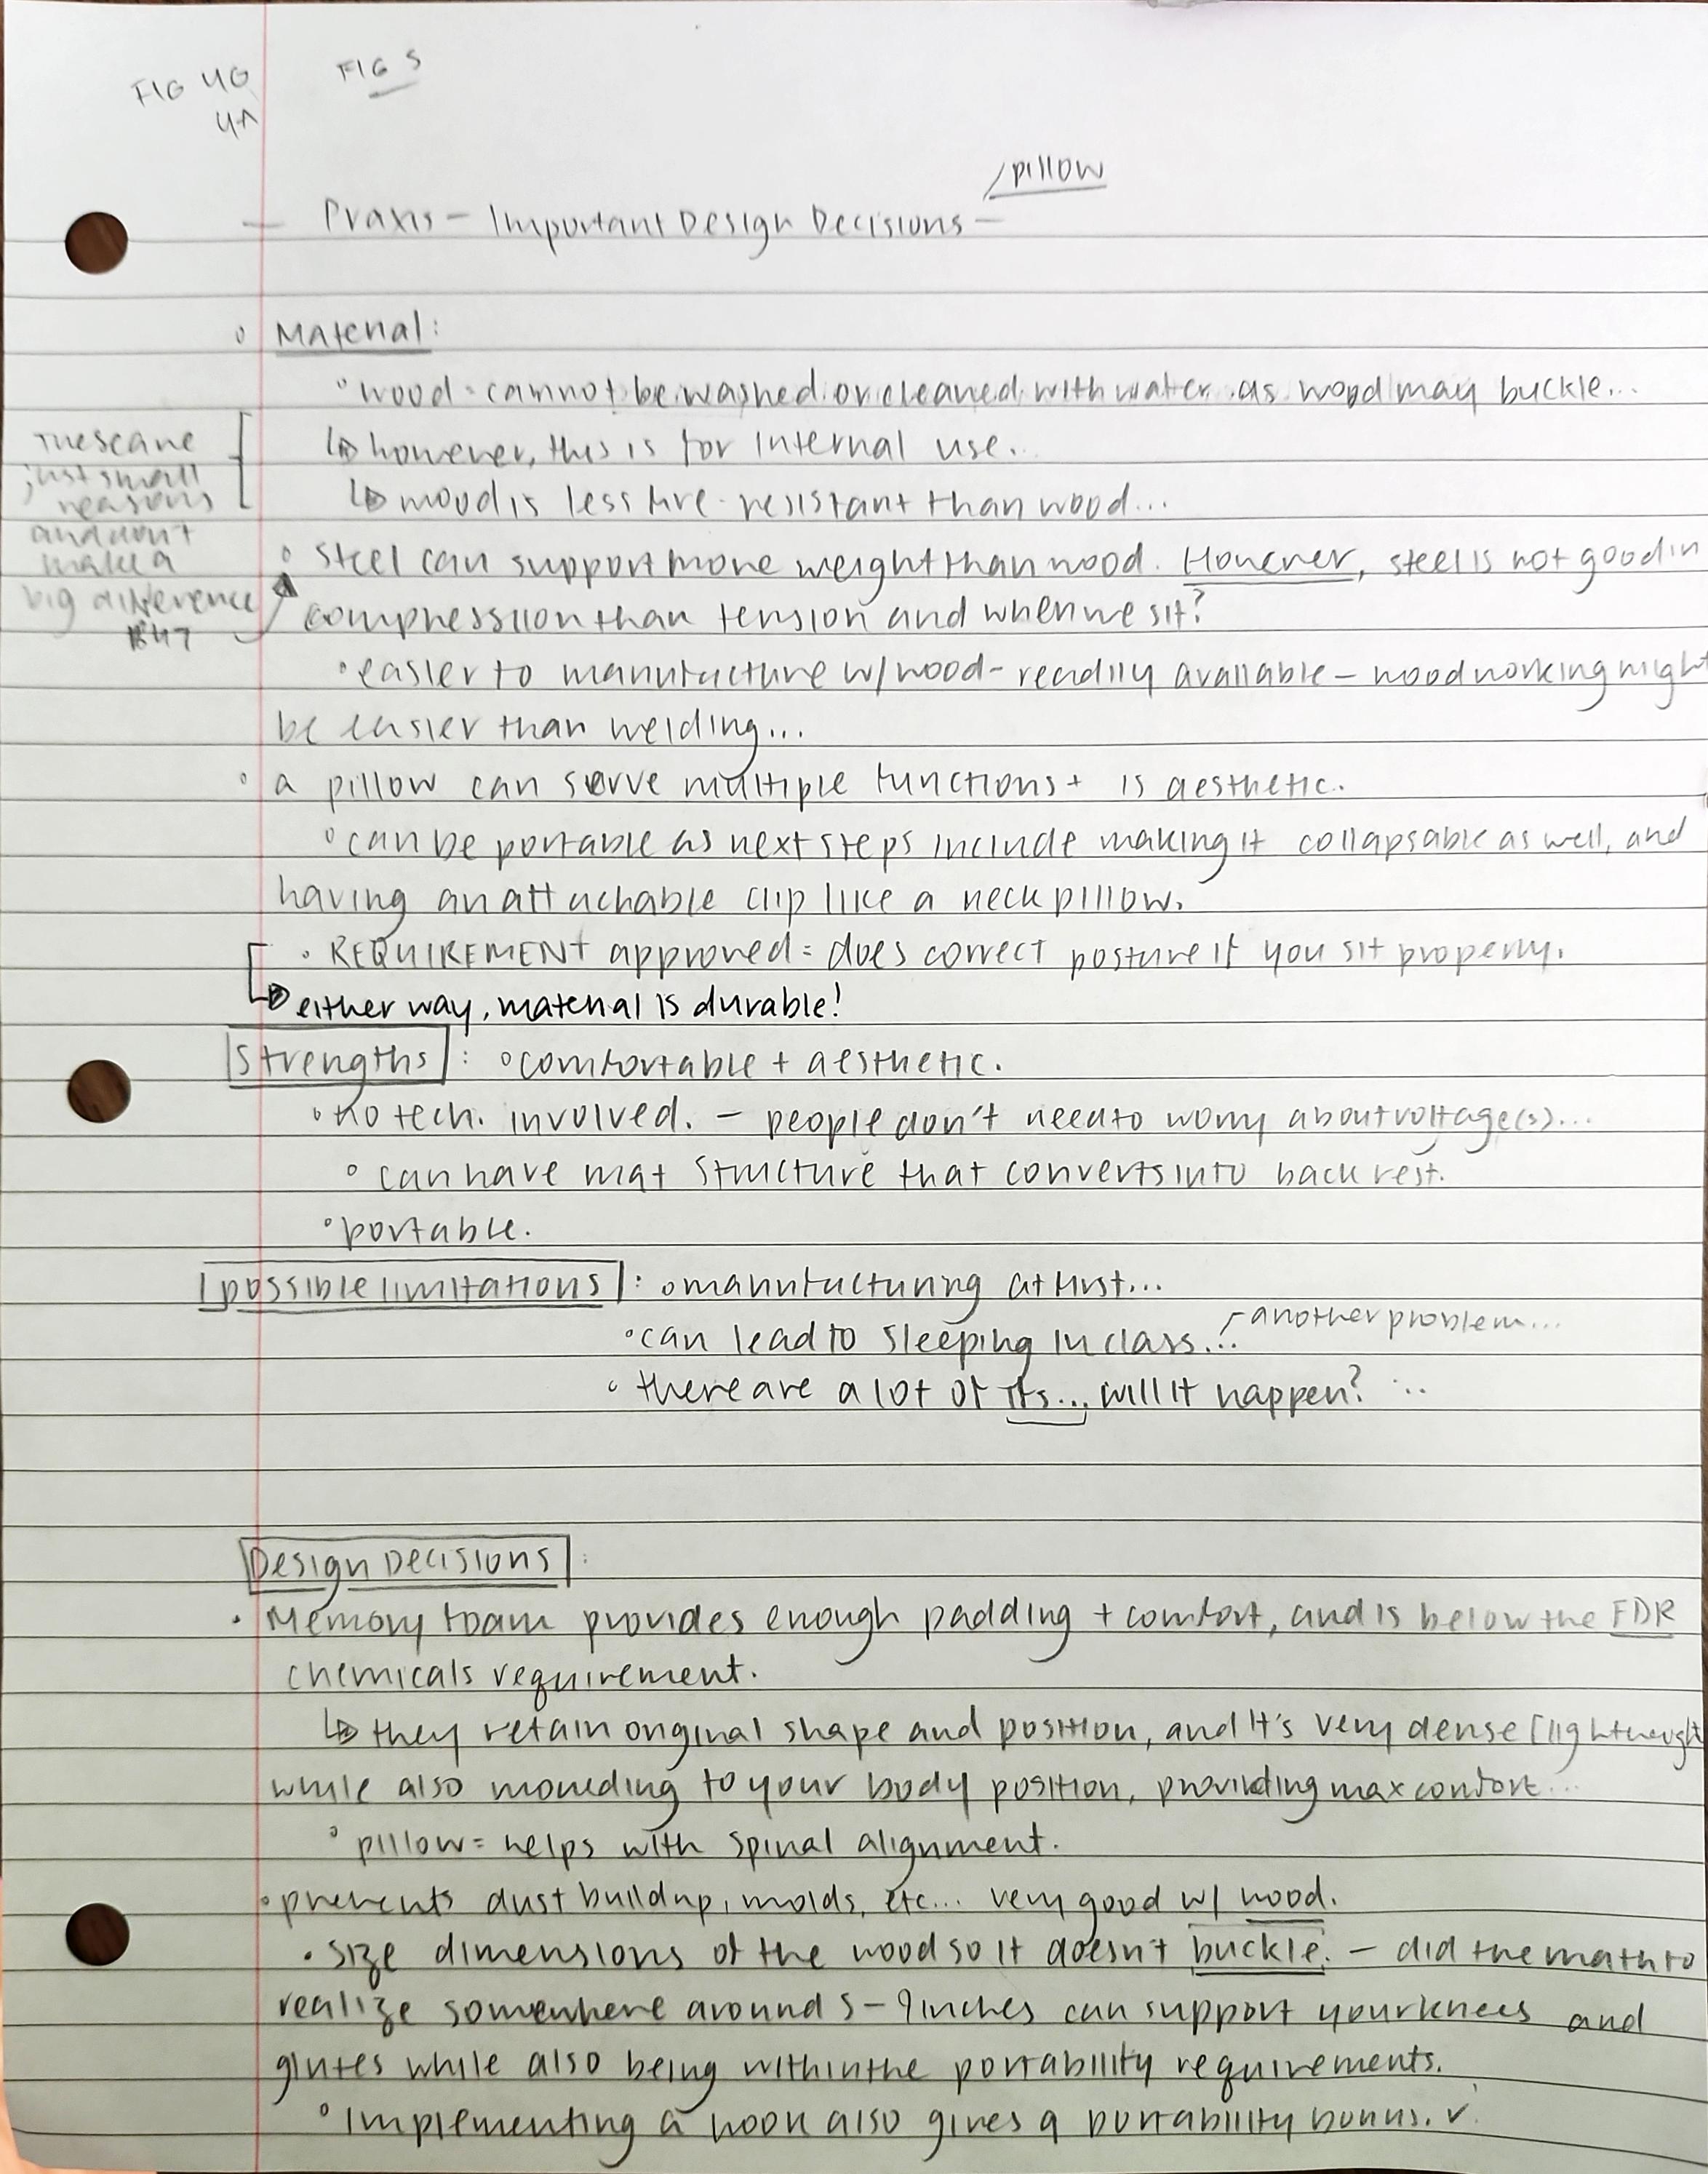 FIG 4G
4A
FIG 5
/pillow
— Praxis — Important Design Decisions —
◦ Material:
◦ wood = cannot be washed or cleaned with water as wood may buckle...
↳ however, this is for internal use..
↳ wood is less fire-resistant than wood...
these are
just small
reasons
and don't
make a
big difference
◦ steel can support more weight than wood. However, steel is not good in
compression than tension and when we sit?
◦ easier to manufacture w/ wood - readily available - woodworking might
be easier than welding...
◦ a pillow can serve multiple functions + is aesthetic.
◦ can be portable as next steps include making it collapsable as well, and
having an attachable clip like a neck pillow.
• REQUIREMENT approved = does correct posture if you sit properly.
↳ either way, material is durable!
Strengths : ◦ comfortable + aesthetic.
◦ no tech. involved. — people don't need to worry about voltage(s)...
◦ can have mat structure that converts into back rest.
◦ portable.
possible limitations : ◦ manufacturing at first...
◦ can lead to sleeping in class... another problem...
◦ there are a lot of ifs... will it happen? ...
Design Decisions :
• Memory foam provides enough padding + comfort, and is below the FDR
chemicals requirement.
↳ they retain original shape and position, and it's very dense [lightweight
while also moulding to your body position, providing max comfort...
◦ pillow = helps with spinal alignment.
◦ prevents dust buildup, molds, etc... very good w/ wood.
• size dimensions of the wood so it doesn't buckle. — did the math to
realize somewhere around 5 - 9 inches can support your knees and
glutes while also being within the portability requirements.
◦ Implementing a hook also gives a portability bonus. ✓